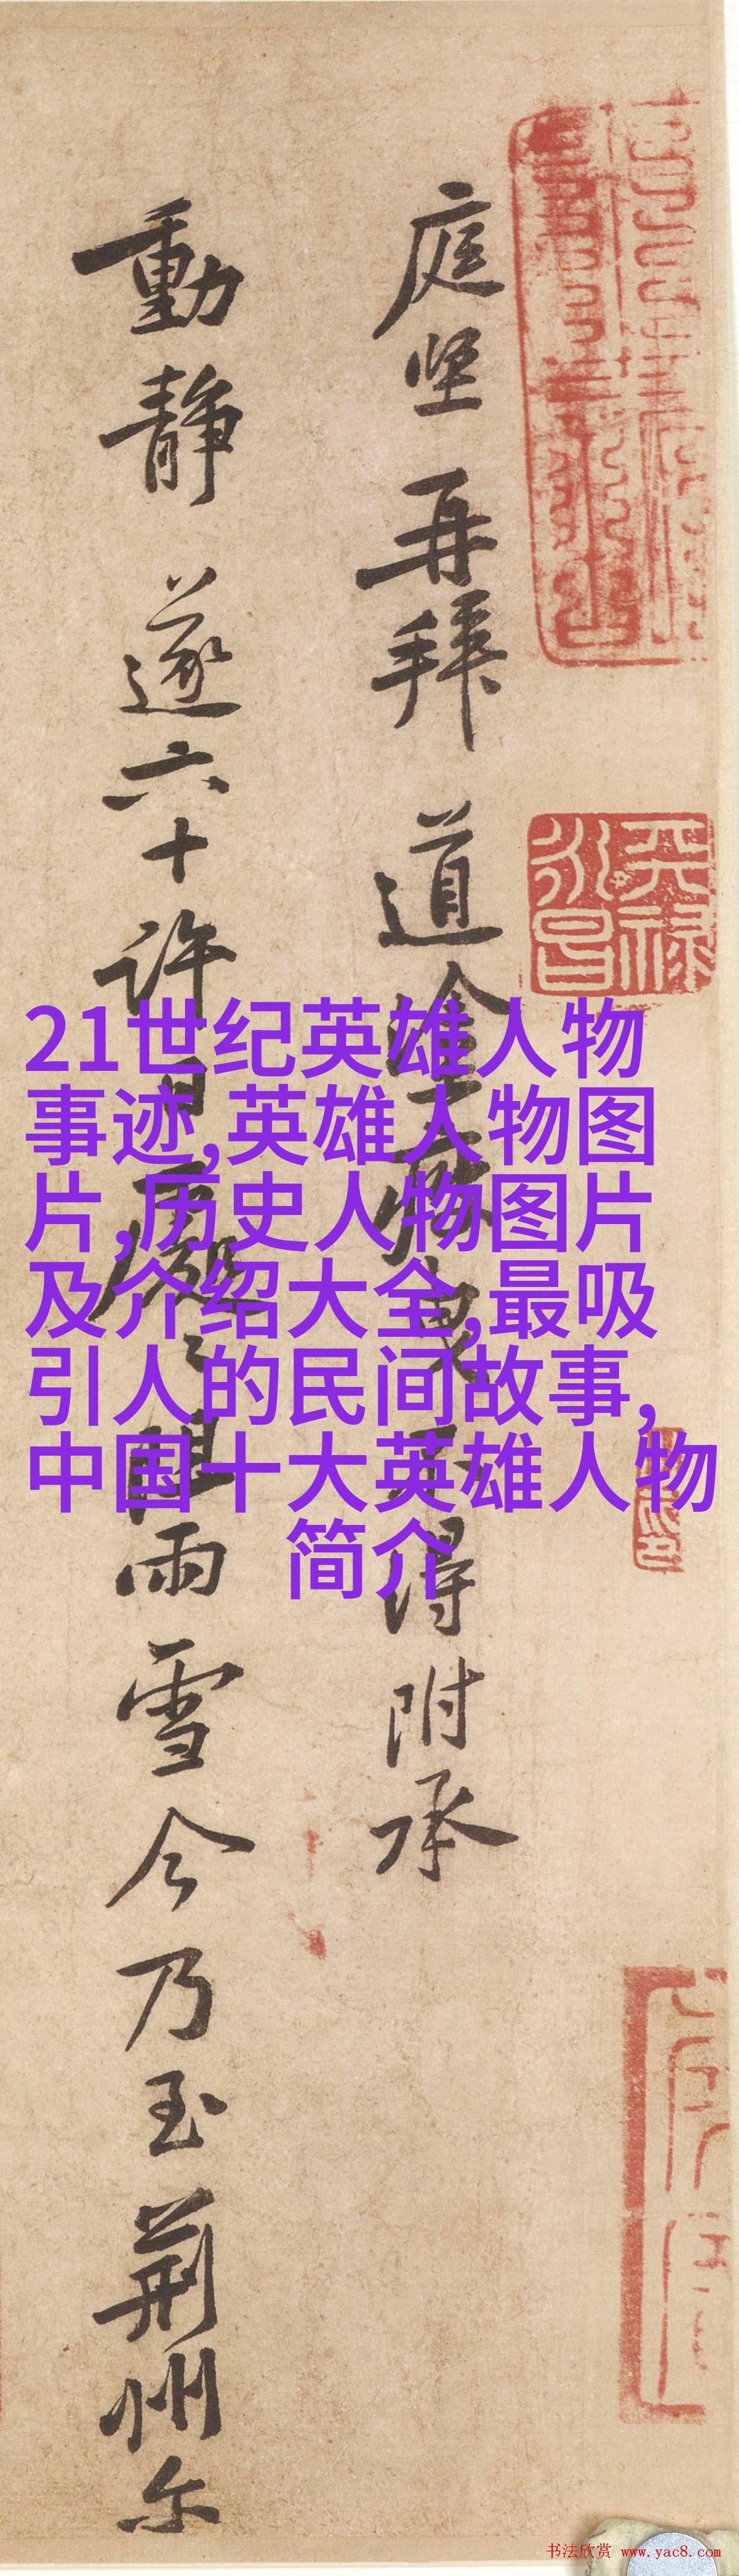 庭坚再拜道塗疲曳不得附承
動静遂六十許日阻雨雪今乃至荆州尔
天禄
永昌
21世纪英雄人物
事迹,英雄人物图
片,历史人物图片
及介绍大全,最吸
引人的民间故事,
中国十大英雄人物
简介
书法欣赏 www.yac8.com